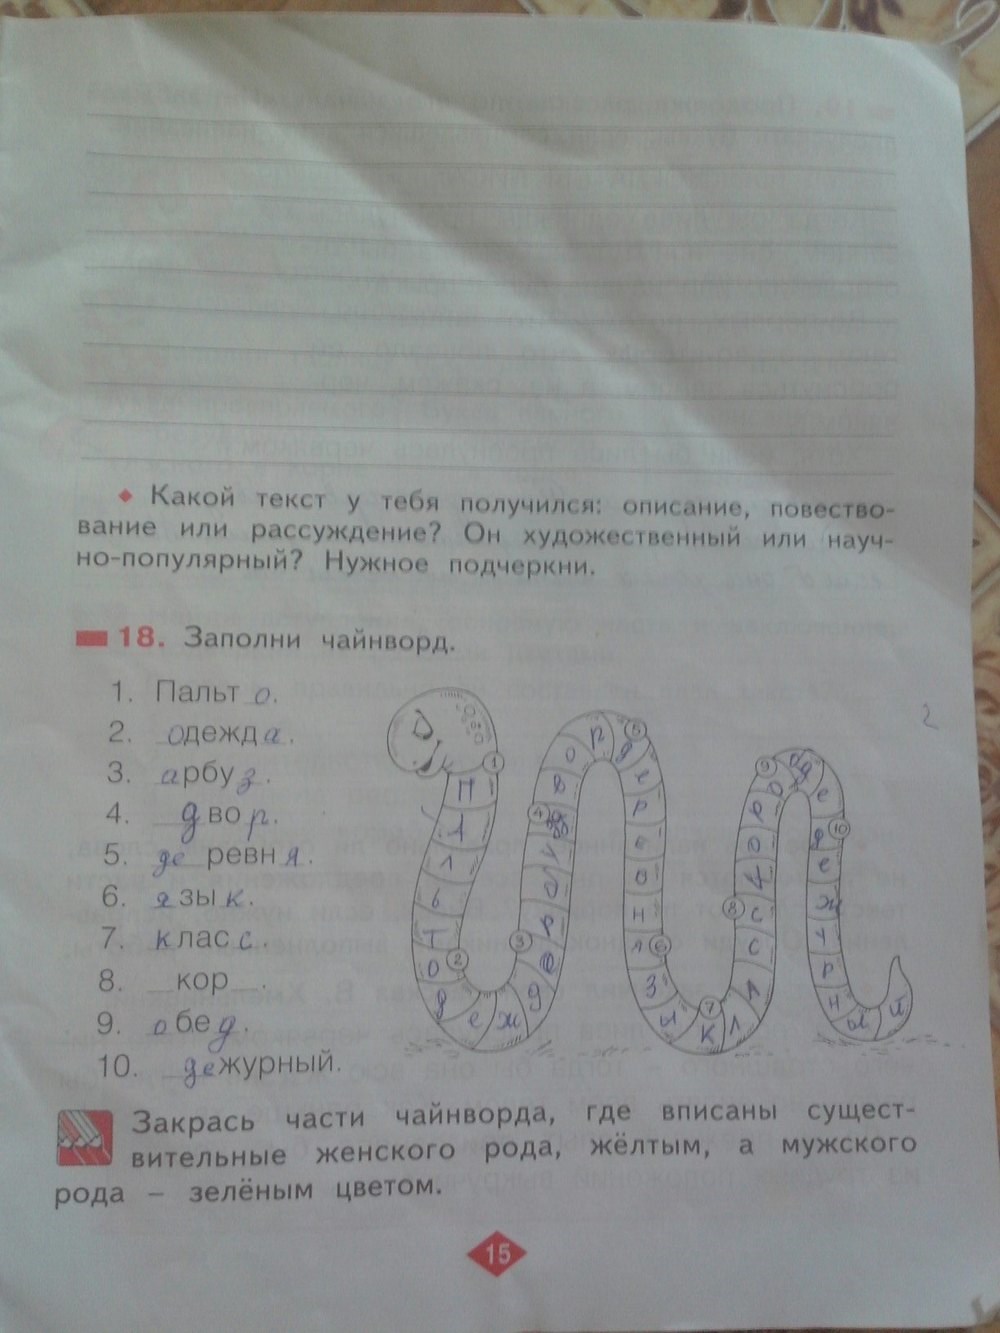 ♦ Какой текст у тебя получился: описание, повество-
вание или рассуждение? Он художественный или науч-
но-популярный? Нужное подчеркни.
18. Заполни чайнворд.
1. Пальто.
2. одежда.
3. арбуз.
4. двор.
5. деревня.
6. язык.
7. класс.
8. кор
9. обед.
10. дежурный.
Закрась части чайнворда, где вписаны сущест-
вительные женского рода, жёлтым, а мужского
рода – зелёным цветом.
15